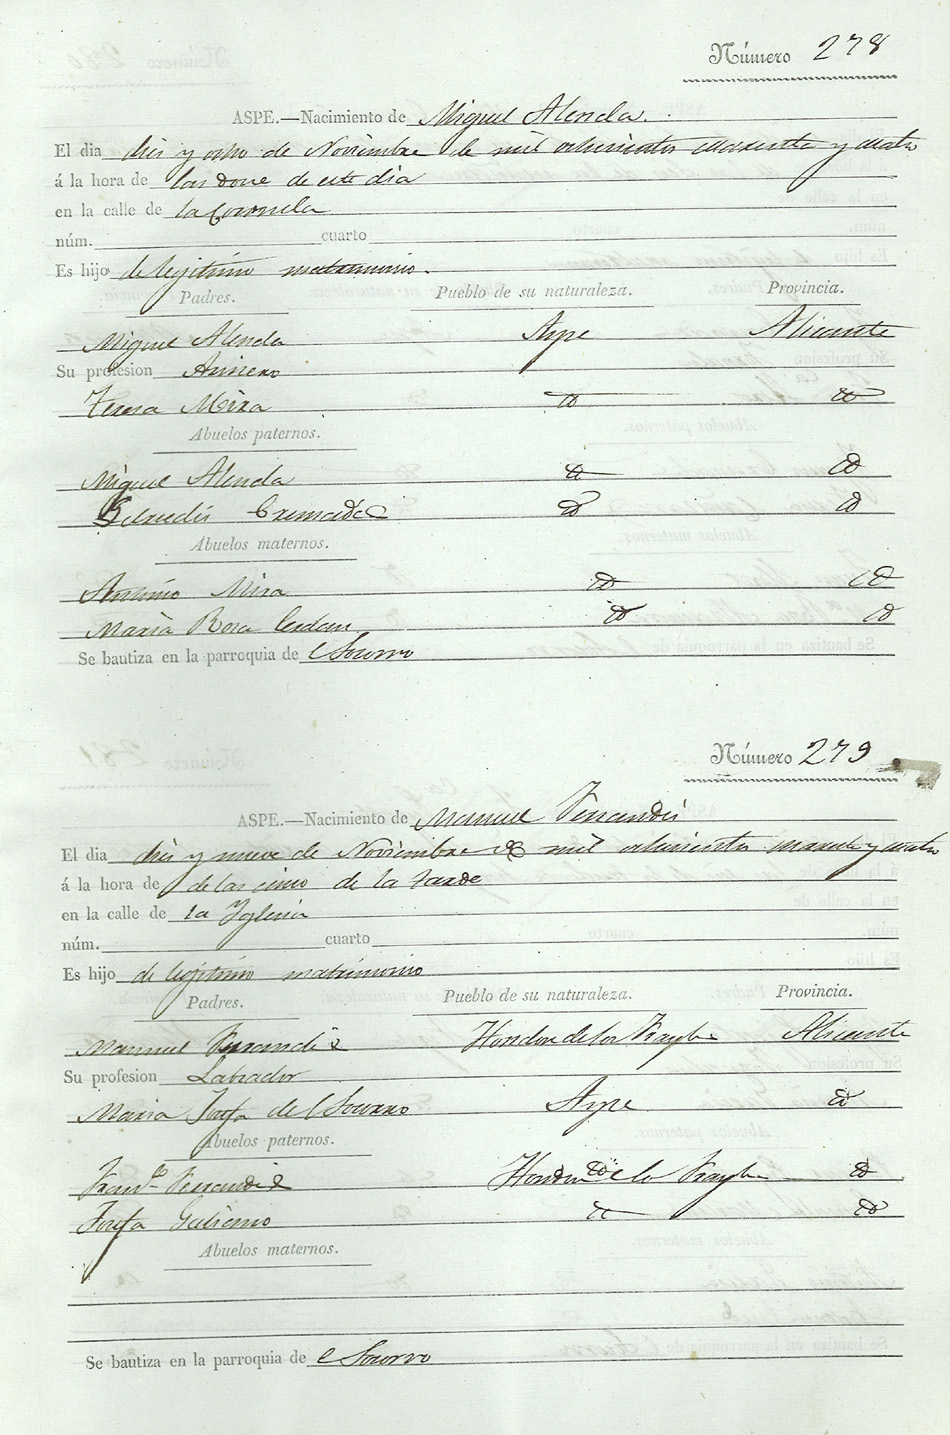 Número 278
ASPE.—Nacimiento de Miguel Alenda.
El dia dies y ocho de Noviembre de mil ochocientos cuarenta y cuatro
á la hora de las doce de este dia
en la calle de la Coronela
núm. cuarto
Es hijo de legitimo matrimonio.
Padres. Pueblo de su naturaleza. Provincia.
Miguel Alenda Aspe Alicante
Su profesion Arriero
Teresa Mira id id
Abuelos paternos.
Miguel Alenda id id
Gertrudis Cremades id id
Abuelos maternos.
Antonio Mira id id
Maria Rosa Cerdan id id
Se bautiza en la parroquia de el Socorro
Número 279
ASPE.—Nacimiento de Manuel Ferrandis
El dia dies y nueve de Noviembre de mil ochocientos cuarenta y cuatro
á la hora de de las cinco de la tarde
en la calle de la Yglesia
núm. cuarto
Es hijo de legitimo matrimonio
Padres. Pueblo de su naturaleza. Provincia.
Manuel Ferrandis Hondon de los Frayles Alicante
Su profesion Labrador
Maria Josefa del Socorro Aspe id
Abuelos paternos.
Franco Ferrandis Hondon de los Frayles id
Josefa id id
Abuelos maternos.
Se bautiza en la parroquia de el Socorro